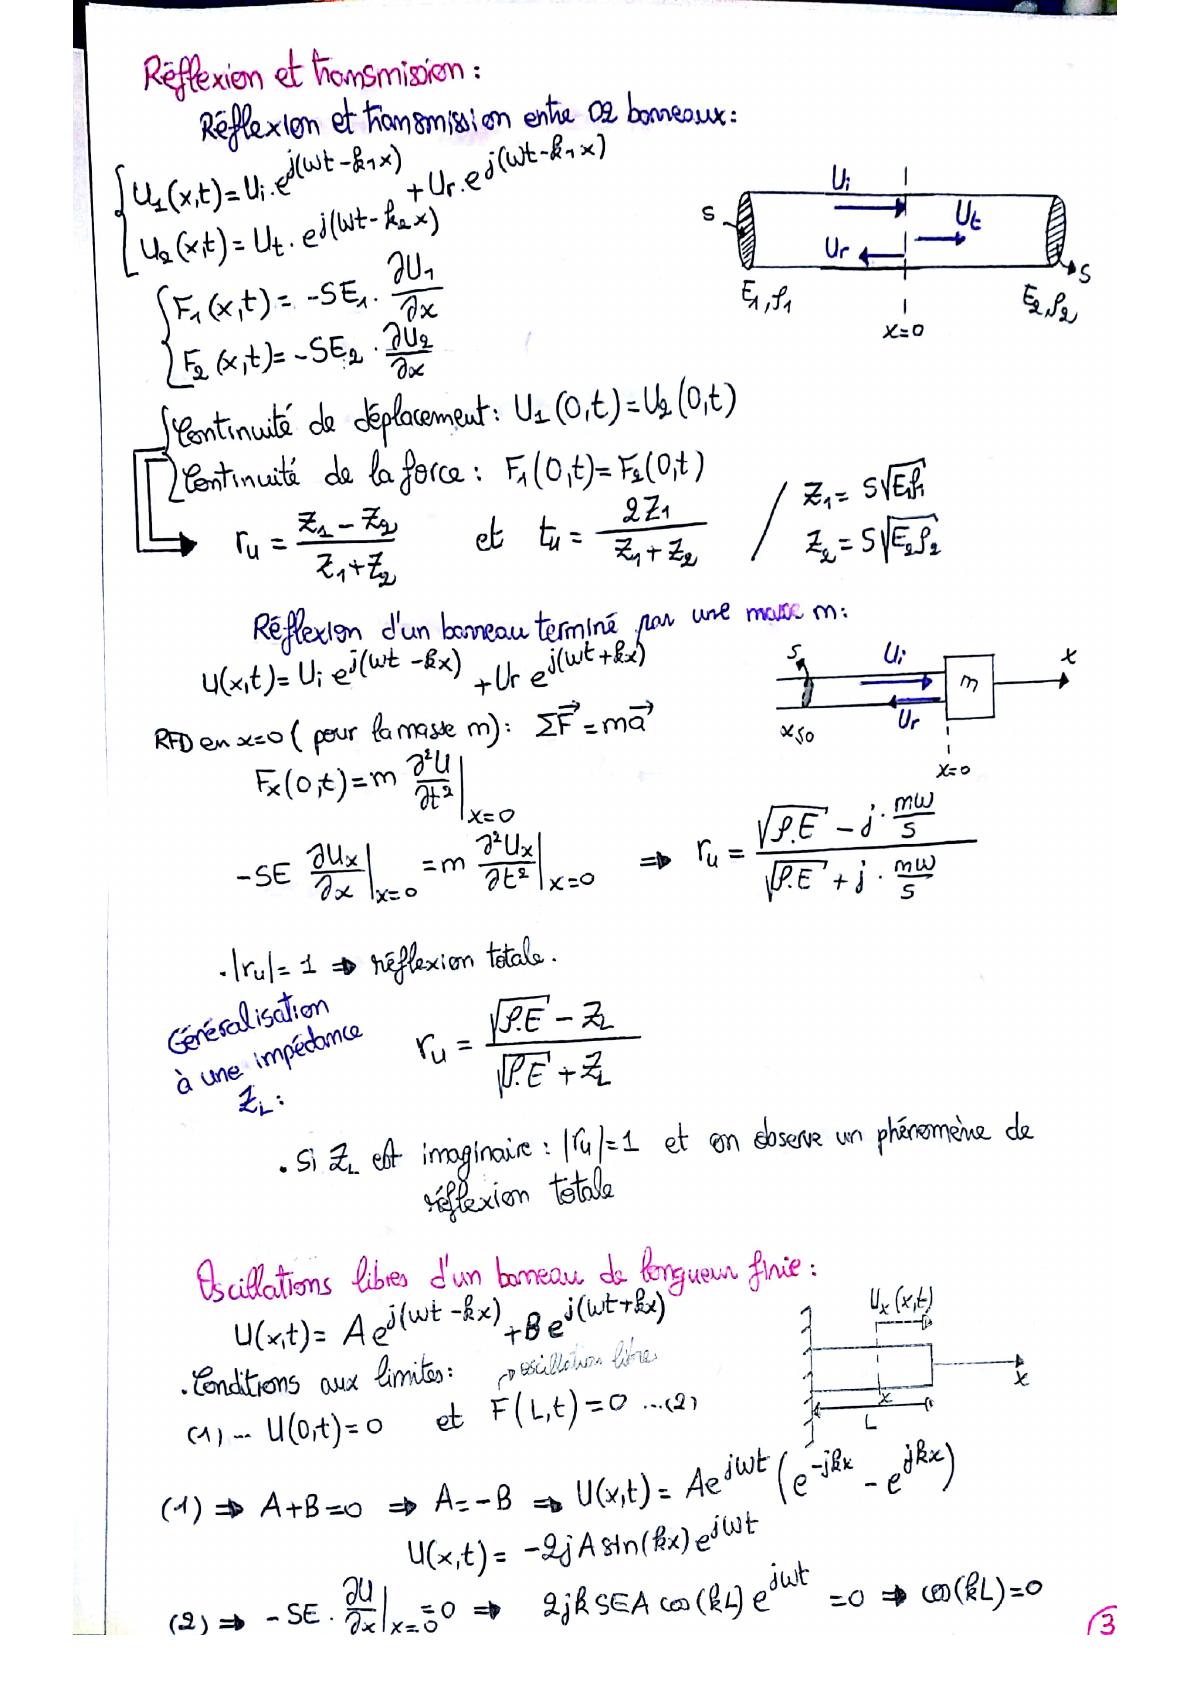 Réflexion et transmission :
Réflexion et transmission entre 02 barreaux :
U₁(x,t) = Ui . e^j(wt - k₁x) + Ur . e^j(wt - k₁x)
U₂(x,t) = Ut . e^j(wt - k₂x)
F₁(x,t) = -SE₁ . ∂U₁/∂x
F₂(x,t) = -SE₂ . ∂U₂/∂x
Ui
S
Ut
Ur
S
E₁, ρ₁
E₂, ρ₂
x=0
Continuité de déplacement : U₁(0,t) = U₂(0,t)
Continuité de la force : F₁(0,t) = F₂(0,t)
ru = (Z₁ - Z₂)/(Z₁ + Z₂) et tu = 2Z₁/(Z₁ + Z₂) / Z₁ = S√(E₁ρ₁)
Z₂ = S√(E₂ρ₂)
Réflexion d'un barreau terminé par une masse m :
U(x,t) = Ui e^j(wt - kx) + Ur e^j(wt + kx)
S
Ui
m
x
Ur
x≤0
x=0
RFD en x=0 (pour la masse m) : ΣF⃗ = ma⃗
Fx(0,t) = m ∂²U/∂t² |x=0
-SE ∂Ux/∂x |x=0 = m ∂²Ux/∂t² |x=0 ⇒ ru = (√(ρ.E) - j . mw/S)/(√(ρ.E) + j . mw/S)
. |ru| = 1 ⇒ réflexion totale.
Généralisation
à une impédance
ZL :
ru = (√(ρ.E) - ZL)/(√(ρ.E) + ZL)
. Si ZL est imaginaire : |ru| = 1 et on observe un phénomène de
réflexion totale
Oscillations libres d'un barreau de longueur finie :
U(x,t) = A e^j(wt - kx) + B e^j(wt + kx)
Ux(x,t)
x
x
L
. Conditions aux limites :
oscillation libre
(1) ... U(0,t) = 0 et F(L,t) = 0 ...(2)
(1) ⇒ A+B=0 ⇒ A=-B ⇒ U(x,t) = Ae^jwt (e^-jkx - e^jkx)
U(x,t) = -2jA sin(kx) e^jwt
(2) ⇒ -SE . ∂U/∂x |x=0 = 0 ⇒ 2jk SEA cos(kL) e^jwt = 0 ⇒ cos(kL) = 0
3